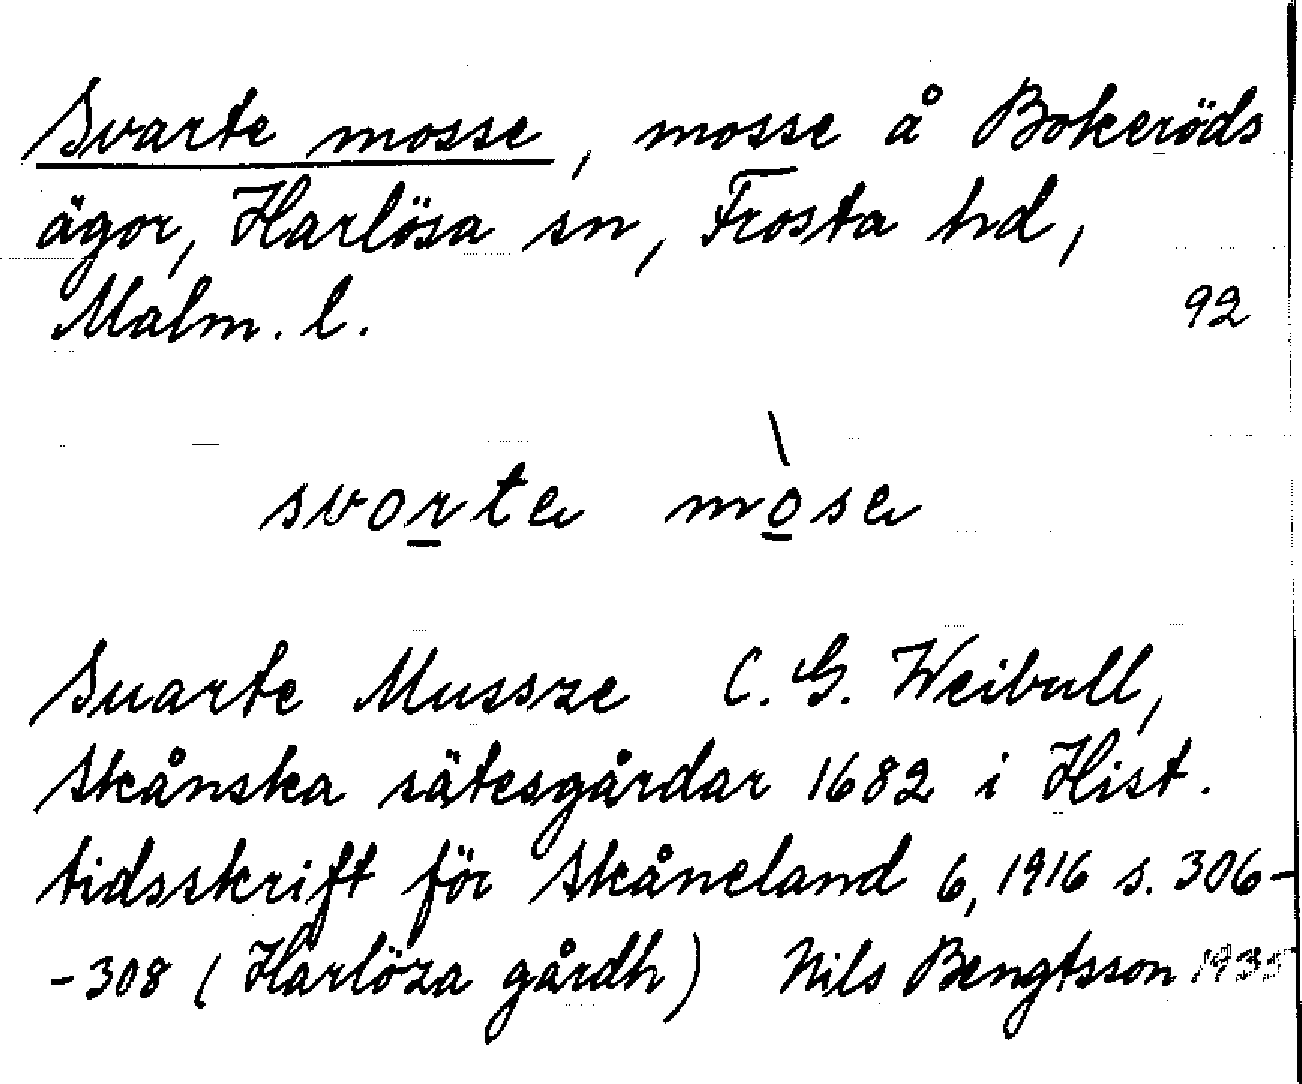 Svarte mosse, mosse å Bokeröds
ägor, Harlösa sn, Frosta hd,
Malm. l. 92
svorte mose
Suarte Mussze C. G. Weibull,
Skånska sätesgårdar 1682 i Hist.
tidsskrift för Skåneland 6, 1916 s. 306-
-308 (Harlöza gårdh) Nils Bengtsson 1935